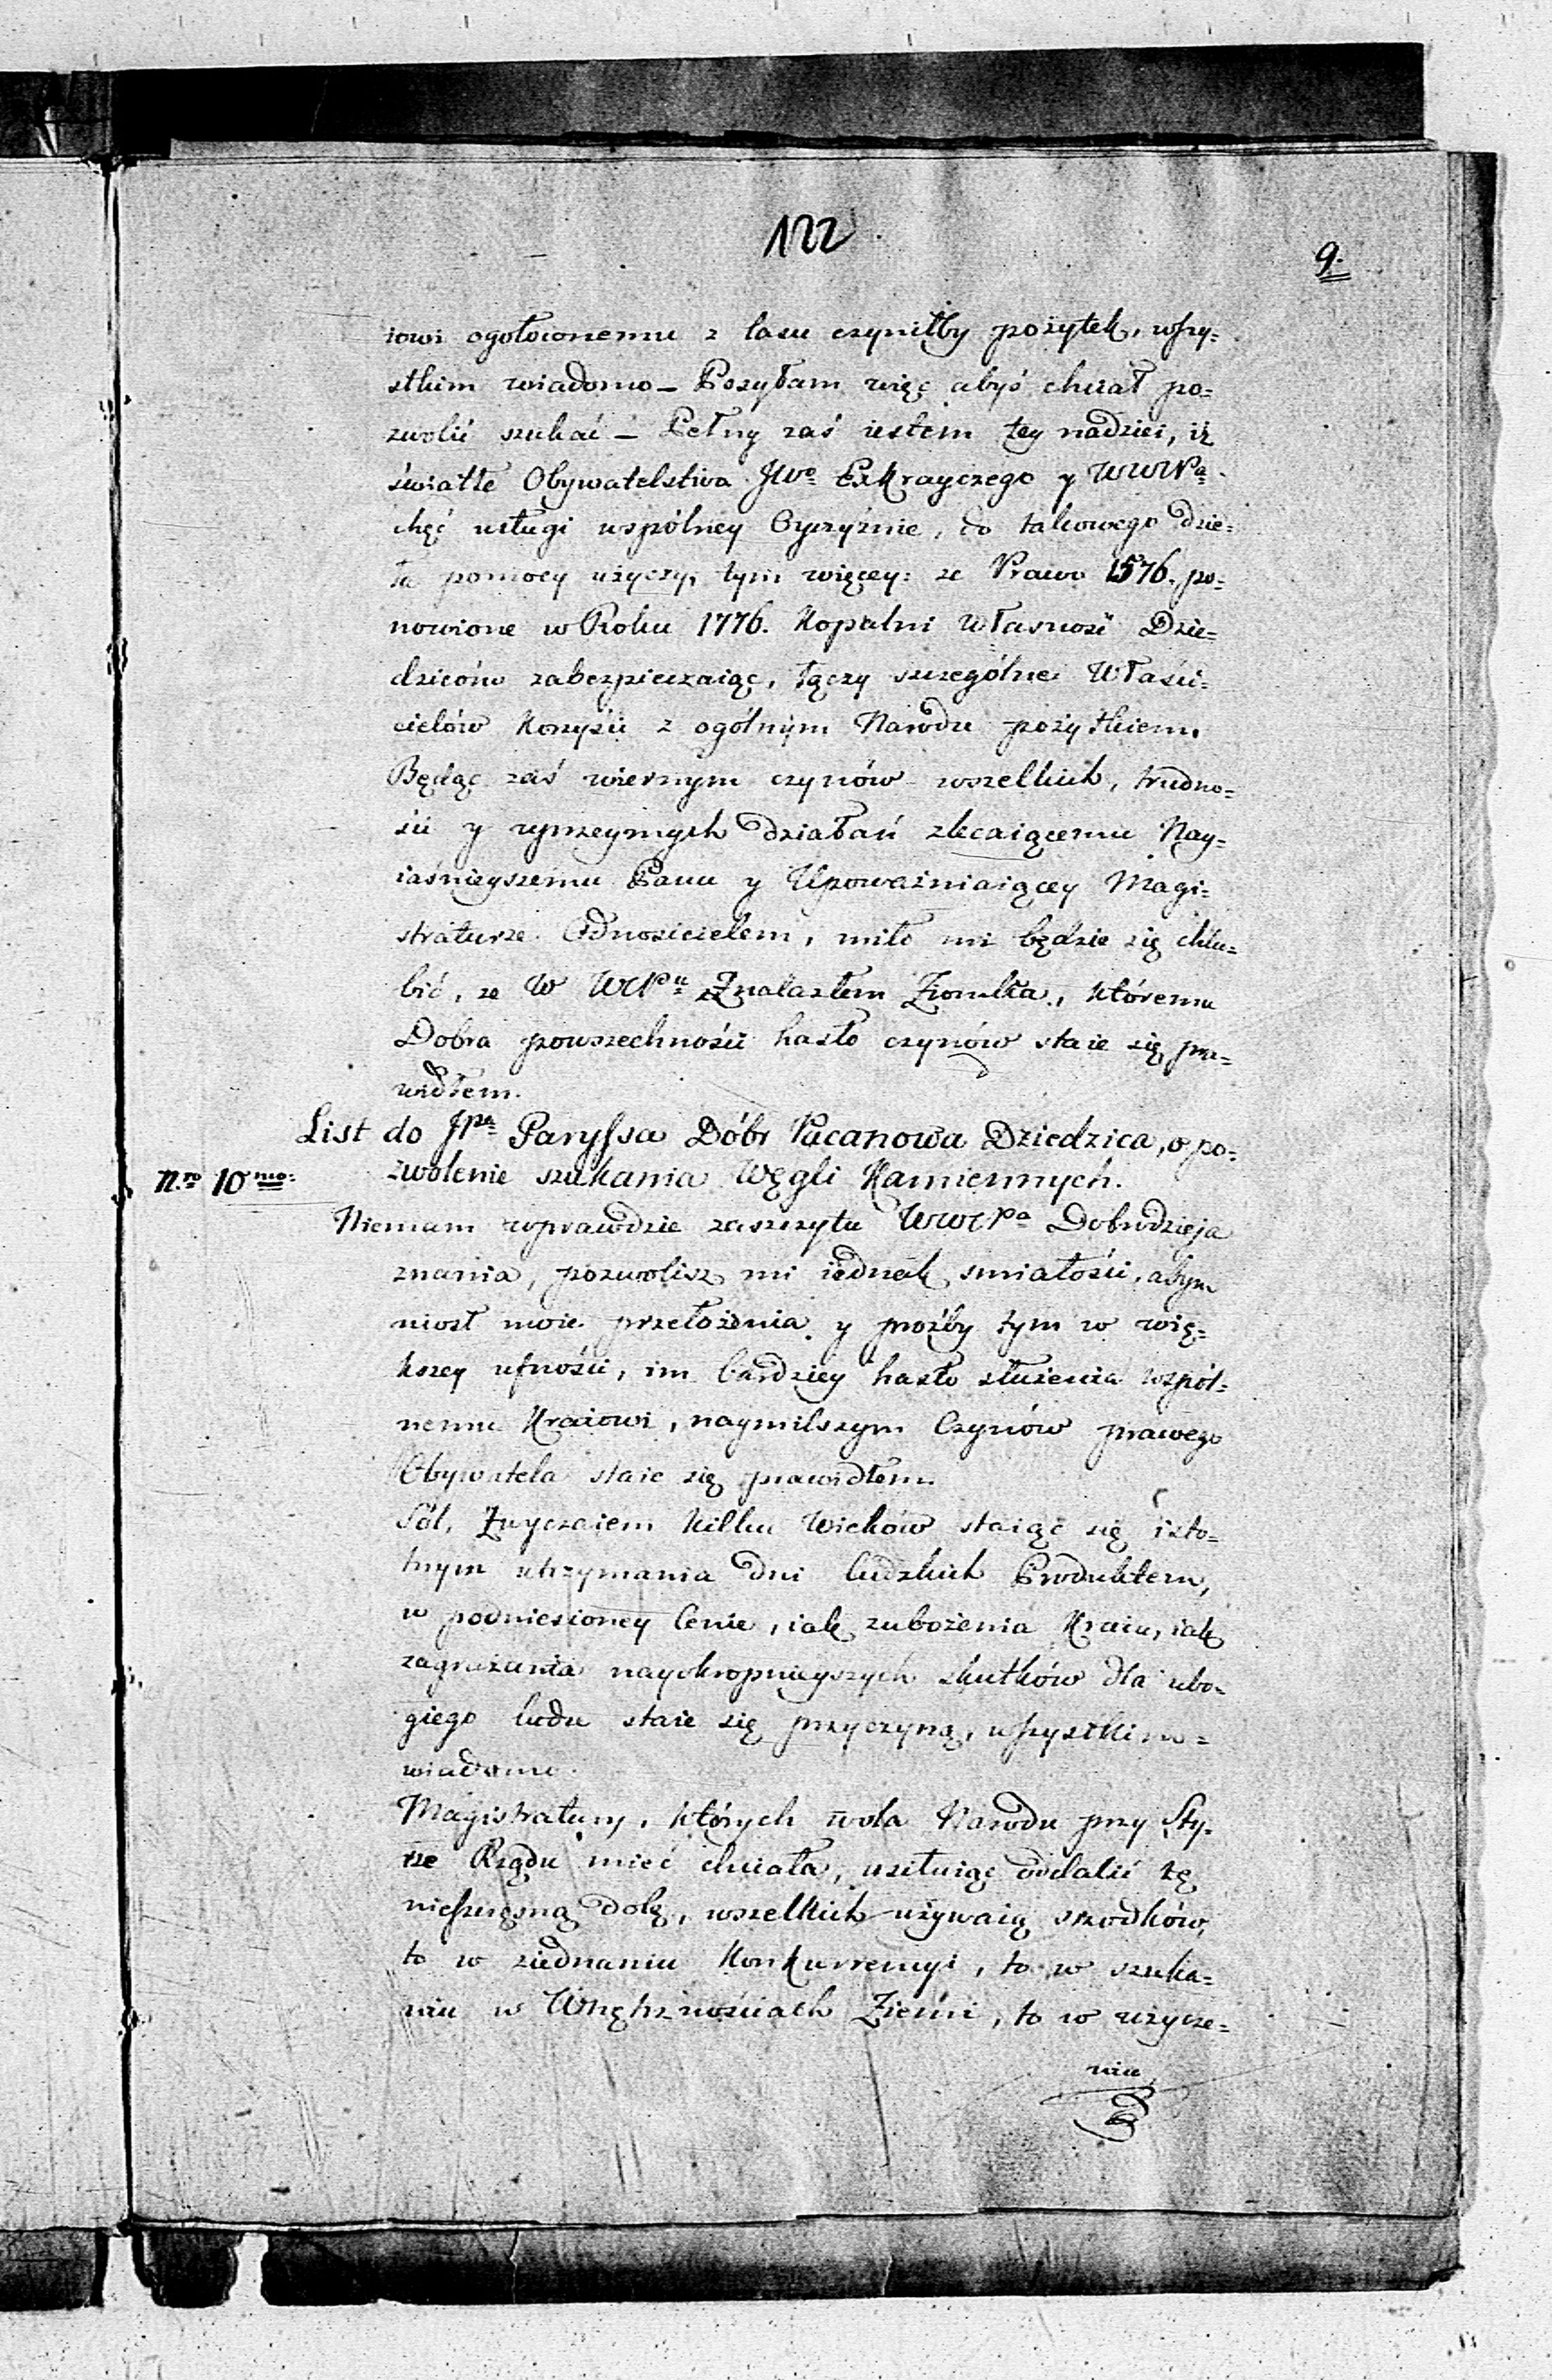 122
9.
iowi ogołoconemu z lasu czyniłby pożytek, wszy=
stkim wiadomo – Posyłam więc abyś chciał po=
zwolić szukać – Pełny zaś iestem tey nadziei, iż
światłe Obywatelstwa JWo ExKrayczego y WWPa
chęć usługi wspólney Oyczyźnie, do takowego dzie=
ła pomocy użyczy, tym więcey: że Prawo 1576. po=
nowione w Roku 1776. Kopalni własność Dzie=
dziców zabezpieczaiąc, łączy szczególne Właści=
cielów korzyści z ogólnym Narodu pożytkiem.
Będąc zaś wiernym czynów wszelkich, trudno=
ści y uprzeymych działań zlecaiącemu Nay=
iaśnieyszemu Panu y Upoważniaiącey Magi=
straturze Odnosicielem, miło mi będzie się chlu=
bić, że w WWPu Znalazłem Ziomka, któremu
Dobra powszechności hasło czynów staie się pra=
widłem.
List do JPa Paryssa Dóbr Pacanowa Dziedzica, o po=
zwolenie szukania Węgli Kamiennych.
N.ro 10mo:
Niemam wprawdzie zaszczytu WWPa Dobrodzieja
znania, pozwolisz mi iednak smiałości, abym
niosł moie przełożenia y proźby tym w wię=
kszey ufności, im bardziey hasło służenia wspól=
nemu Kraiowi, naymilszym Czynów prawego
Obywatela staie się prawidłem.
Sól, Zwyczaiem kilku Wieków staiąc się isto=
tnym utrzymania dni ludzkich Produktem,
w podniesioney Cenie, iak zubożenia Kraiu, iak
zagrażania nayokropnieyszych skutków dla ubo=
giego ludu staie się przyczyną, wszystkim=
wiadomo.
Magistratury, których wola Narodu przy Sty=
rze Rządu mieć chciała, usiłuiąc oddalić tę
nieszczęsną dolę, wszelkich używaią srzodków,
to w ziednaniu Konkurrencyi, to w szuka=
niu w Wnętrznościach Ziemi, to w użycze=
niu